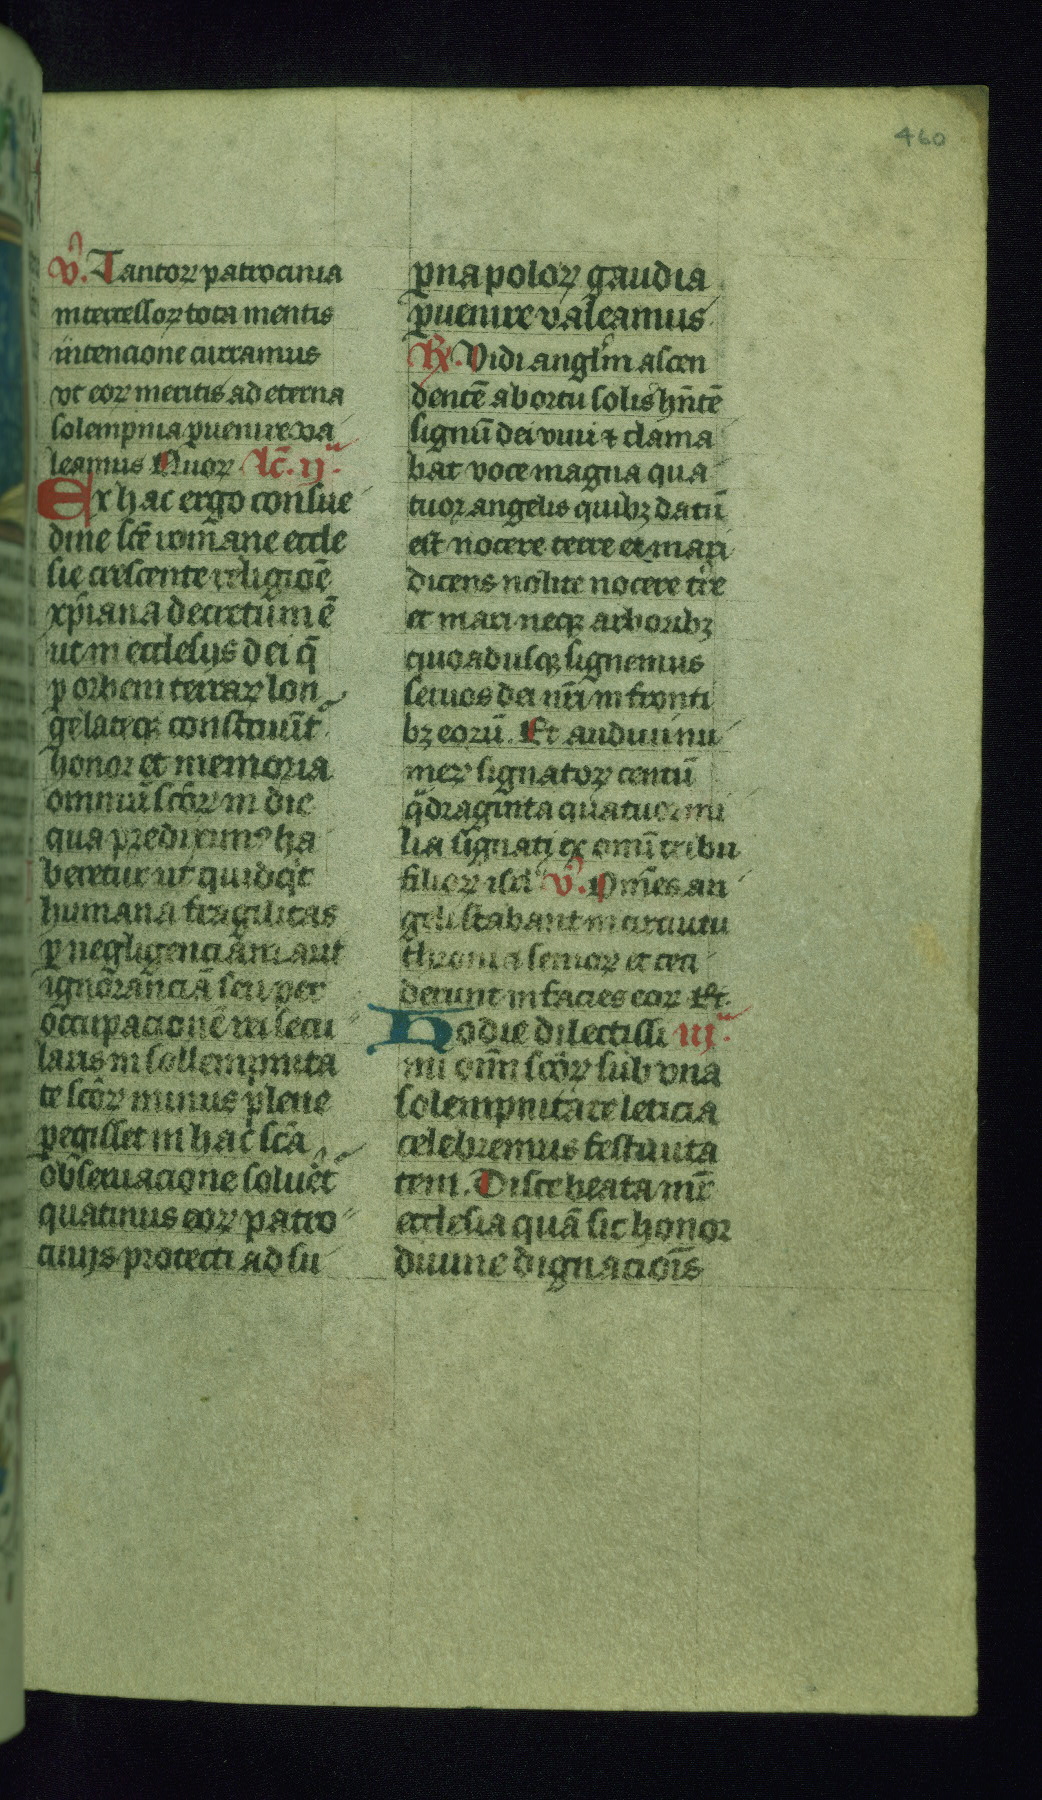 460
V̉. Tantoꝝ patrocinia
intercessoꝝ tota mentis
intencione curramus
vt eoꝝ meritis ad eterna
solempnia ꝑuenire va
leamus Quoꝝ Lc̄. ij.
Ex hac ergo consue
dine sc̄e rom̄ane eccle
sie crescente religiōe
xp̄iana decretum ē
ut in ecclesijs dei q̄
ꝑ orbem terraꝝ lon
ge lateqꝫ construūt᷑
honor et memoria
omniū sc̄oꝝ in die
qua prediximꝰ ha
beretur ut quidq̇t
humana fragilitas
ꝑ negligenciam aut
ignōranciā seu per
occupacionē rei secu
laris in sollempnita
te sc̄oꝝ minus plene
ꝑegisset in hac sc̄a
obseruacione soluēt᷑
quatinus eoꝝ patro
cinijs protecti ad su
ꝑna poloꝝ gaudia
ꝑuenire valeamus
R̷. Vidi angl̄m ascen
dentē ab ortu solis hn̄tē
signū dei viui ⁊ clama
bat voce magna qua
tuor angelis quibꝫ datū
est nocere terre et mari
dicens nolite nocere tr̄e
et mari neqꝫ arboribꝫ
quoadusqꝫ signemus
seruos dei nr̄i in fronti
bꝫ eorū. Et audiui nu
meꝝ signatoꝝ centū
q̄draginta quatuor mi
lia signati ex om̄i tribu
filioꝝ isrl̄ V̉. Om̄es an
geli stabant in circuitu
throni ⁊ senioꝝ et ceci
derunt in facies eoꝝ Et.
Hodie dilectissi iij.
mi om̄i sc̄oꝝ sub vna
solempnitate leticia
celebremus festiuita
tem. Disce beata mr̄
ecclesia quā sic honor
diuine dignaciōis